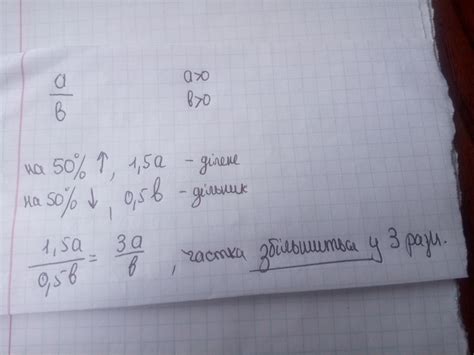 a/b a>0
b>0
на 50% ↑, 1,5a - ділене
на 50% ↓, 0,5b - дільник
1,5a/0,5b = 3a/b, частка збільшиться у 3 рази.